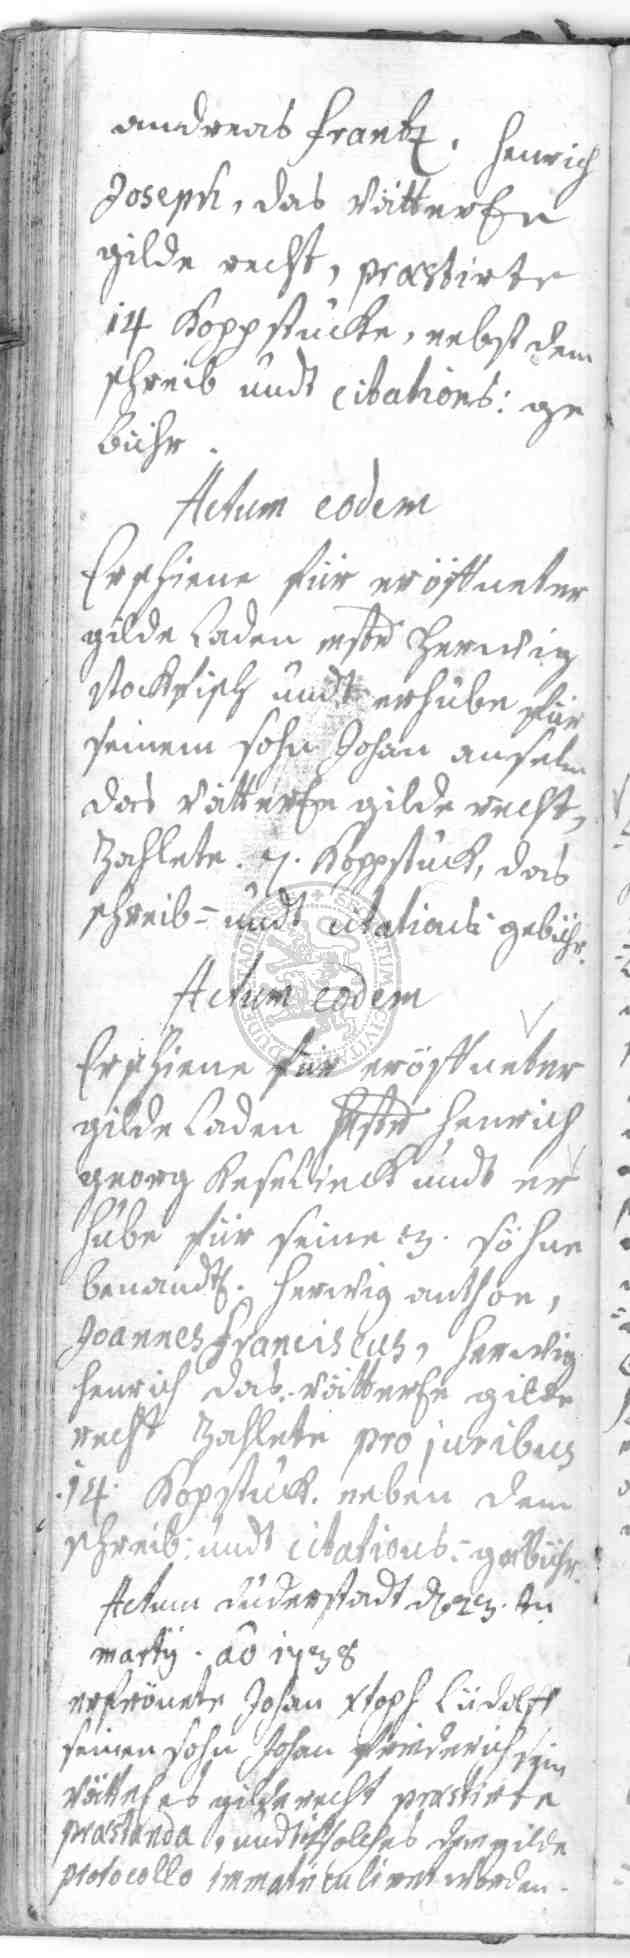 andreas frantz, henrich
Joseph, das Vätterln
gilde recht, præstirte
14 Koppstücke, nebst dem
schreib undt citations: ge
bühr.
Actum eodem
Erschiene für eröffneter
gilde Laden mstr Herwig
Stockfisch undt erhube für
seinem sohn Johan anselm
das Vätterln gilde recht,
Zahlete. 7. Koppstück, das
schreib- undt citations gebühr.
Actum eodem
Erschiene für eröffneter
gilde Laden Mstr henrich
georg undt er
hube für seine 3. söhne
benandtl. herwig anthon,
Joannes Franciscus, herwig
henrich das vätterln gilde
recht Zahlete pro juribus
14. Kopstück. neben dem
schreib: undt citations:- gebühr.
Actum Duderstadt d. 23. tn
martij. ao 1738
Johan Xtoph Lüdolff
seinen sohn Johan friederich sein
gilde recht præstirte
præstanda, undt ist solches dem gilde
protocollo immatriculiret worden.